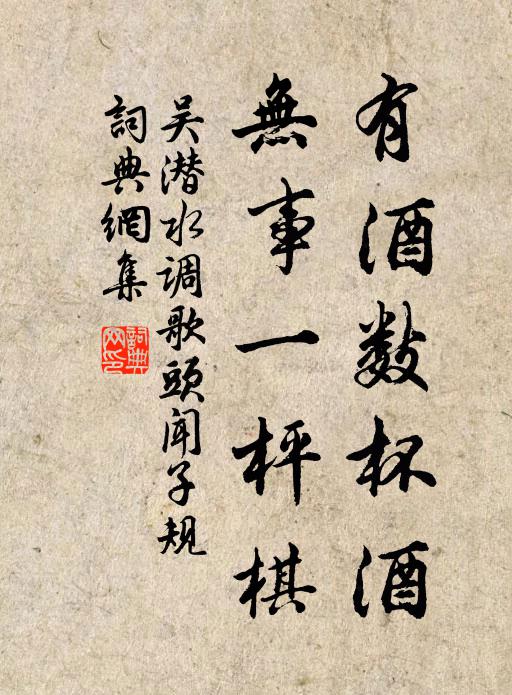 有酒数杯酒
無事一枰棋
吴潜水调歌头闻子规
詞典網集
詞典网印